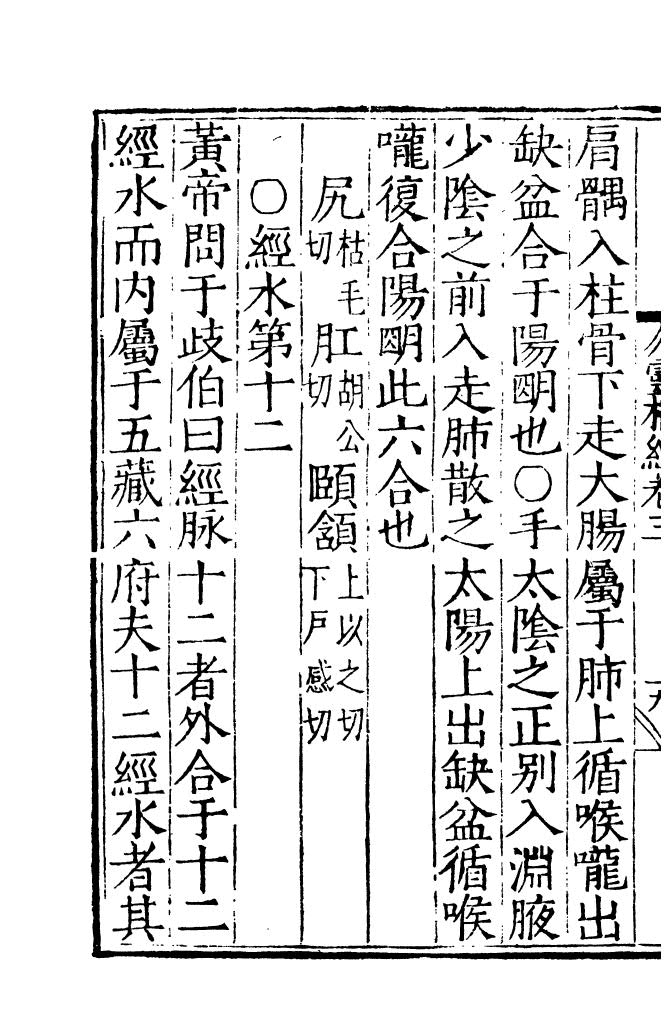 肩髃入柱骨下走大腸屬于肺上循喉嚨出
缺盆合于陽明也〇手太陰之正別入淵腋
少陰之前入走肺散之太陽上出缺盆循喉
嚨復合陽明此六合也
尻枯毛切肛胡公切頤頷上以之切下戶感切
〇經水第十二
黃帝問于歧伯曰經脉十二者外合于十二
經水而内屬于五藏六府夫十二經水者其